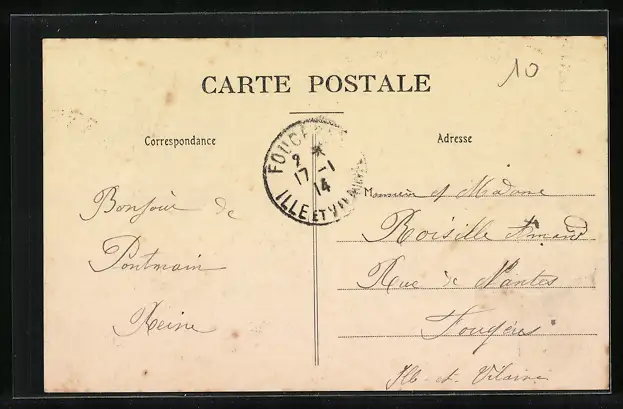 CARTE POSTALE
10
Correspondance
Adresse
FOUGÈRES
2 *
17 - 1
14
ILLE ET VILAINE
Bonjour de
Pontmain
Reine
Monsieur et Madame
Roisille Amand
Rue de Nantes
Fougères
Ille-et-Vilaine